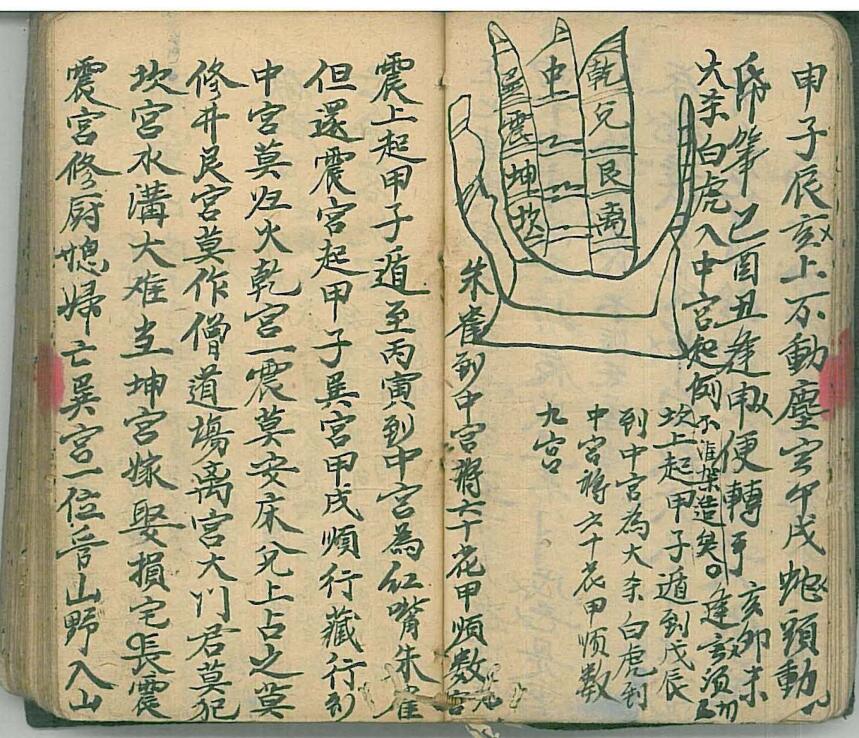 申子辰亥上不動塵寅午戌蛇頭動
師筆巳酉丑逢申便轉乎亥卯未
大杀白虎入中宮起例不准架造矣。逢亥須
坎上起甲子遁到戊辰
到中宮為大杀白虎到
中宮将六十花甲順数
九宮
乾
兌
艮
離
中
巽
震
坤
坎
朱雀到中宮将六十花甲順数九宮
震上起甲子遁至丙寅到中宮為紅嘴朱雀
但還震宮起甲子巽宮甲戌順行藏行到
中宮莫归火乾宮一震莫安床兌上占之莫
修井艮宮莫作僧道場离宮大门君莫犯
坎宮水溝大难当坤宮嫁娶損宅長震
震宮修厨媳婦亡巽宮一位音山野入山